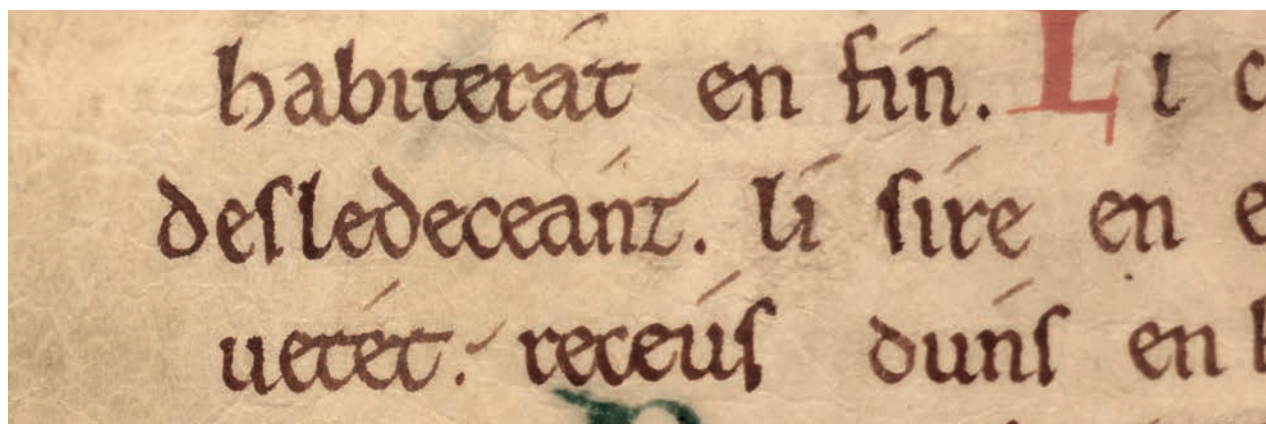 habiterát en fín. Li c
deſledeceánz. lí ſíre en e
uetét. receúſ dúnſ en h